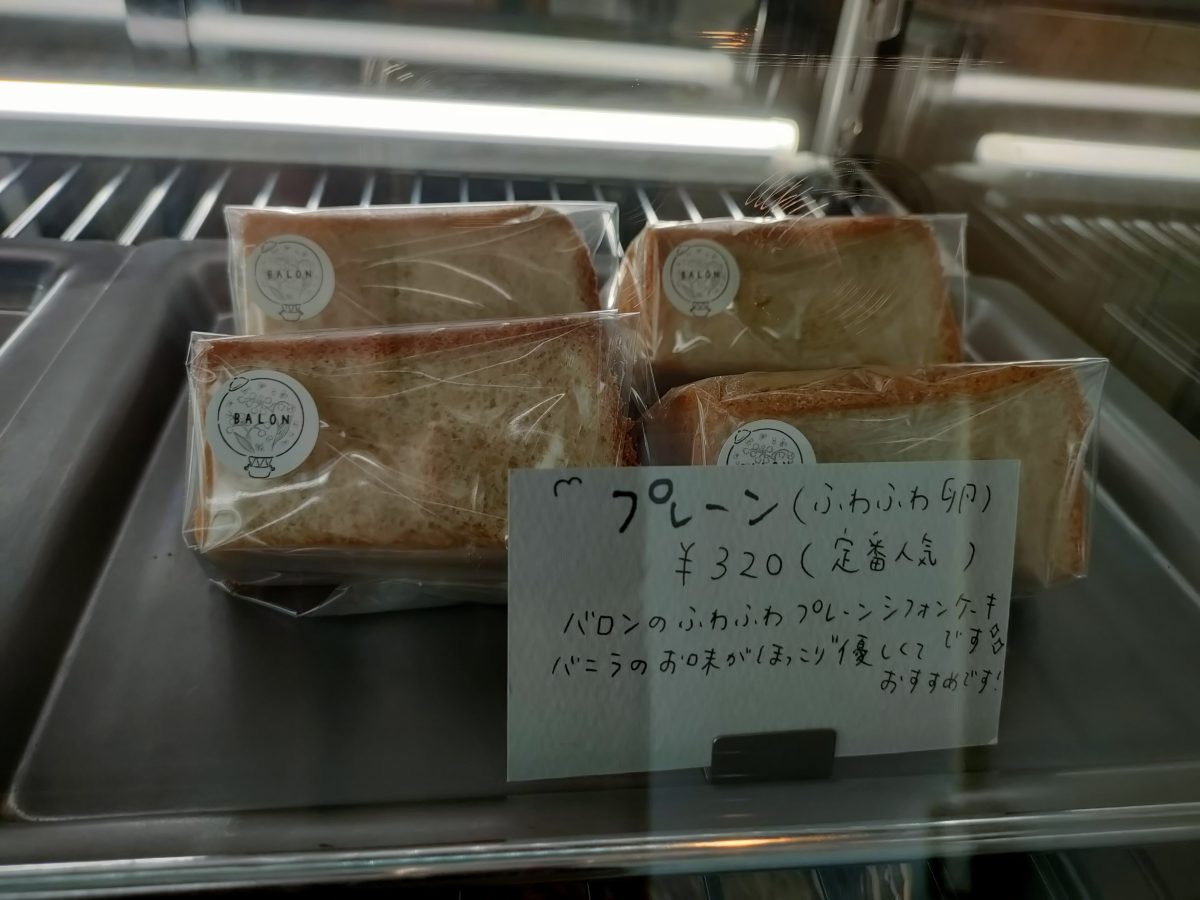 BALON
BALON
BALON
プレーン(ふわふわ卵)
¥320(定番人気)
バロンのふわふわプレーンシフォンケーキ
バニラのお味がほっこり優しくてです
おすすめです!